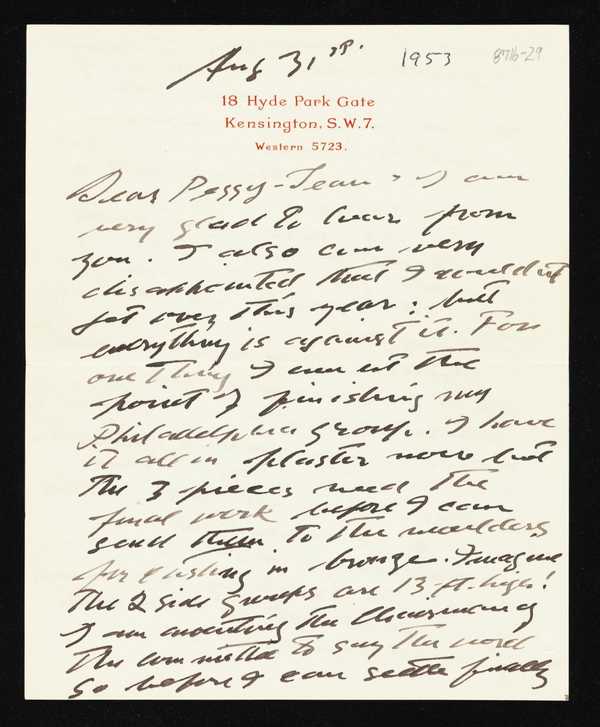 Aug 31st. 1953 8716-29
18 Hyde Park Gate
Kensington, S.W.7.
Western 5723.
Dear Peggy-Jean - I am
very glad to hear from
you. I also am very
disappointed that I couldn't
get over this year; but
everything is against it. For
one thing I am at the
point of finishing my
Philadelphia group. I have
it all in plaster now but
the 3 pieces need the
final work before I can
send them to the moulders
for casting in bronze. Imagine
the 2 side groups are 13-ft-high!
I am awaiting the Chairman of
the committee to say the word
so before I can settle finally